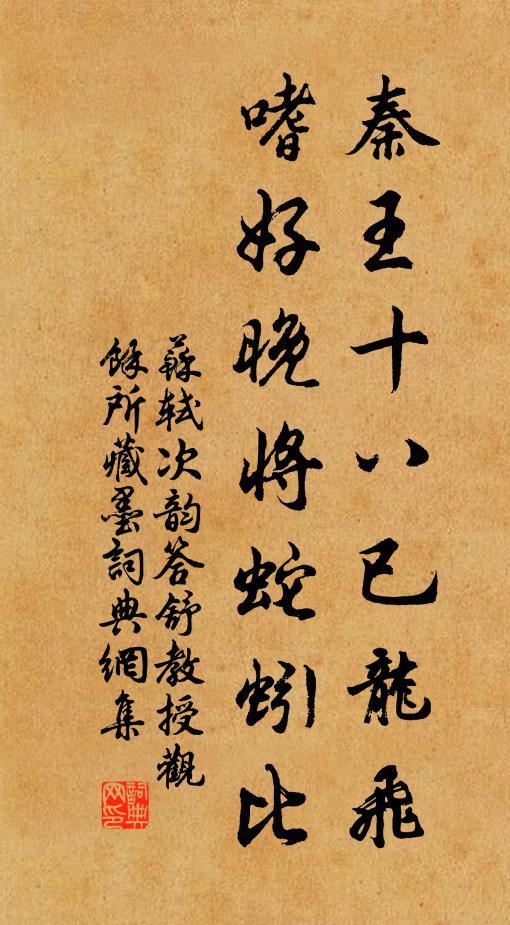 秦王十八已龍飛
嗜好晚將蛇蚓比
蘇軾次韵答舒教授觀
餘所藏墨詞典網集
詞典网印